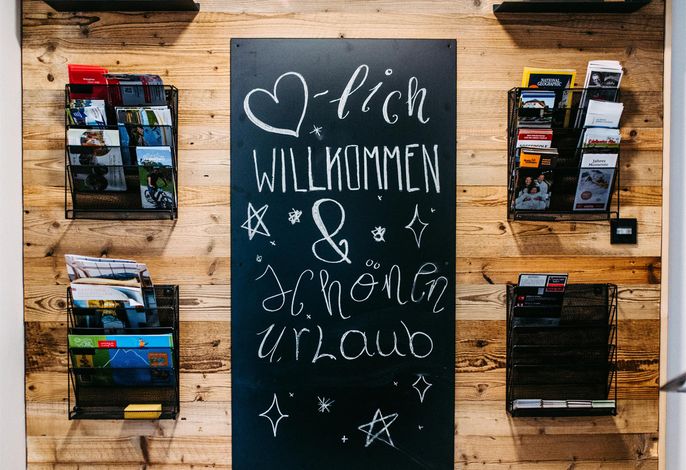 ♡-lich
WILLKOMMEN
&
schönen
urlaub
NATIONAL
GEOGRAPHIC